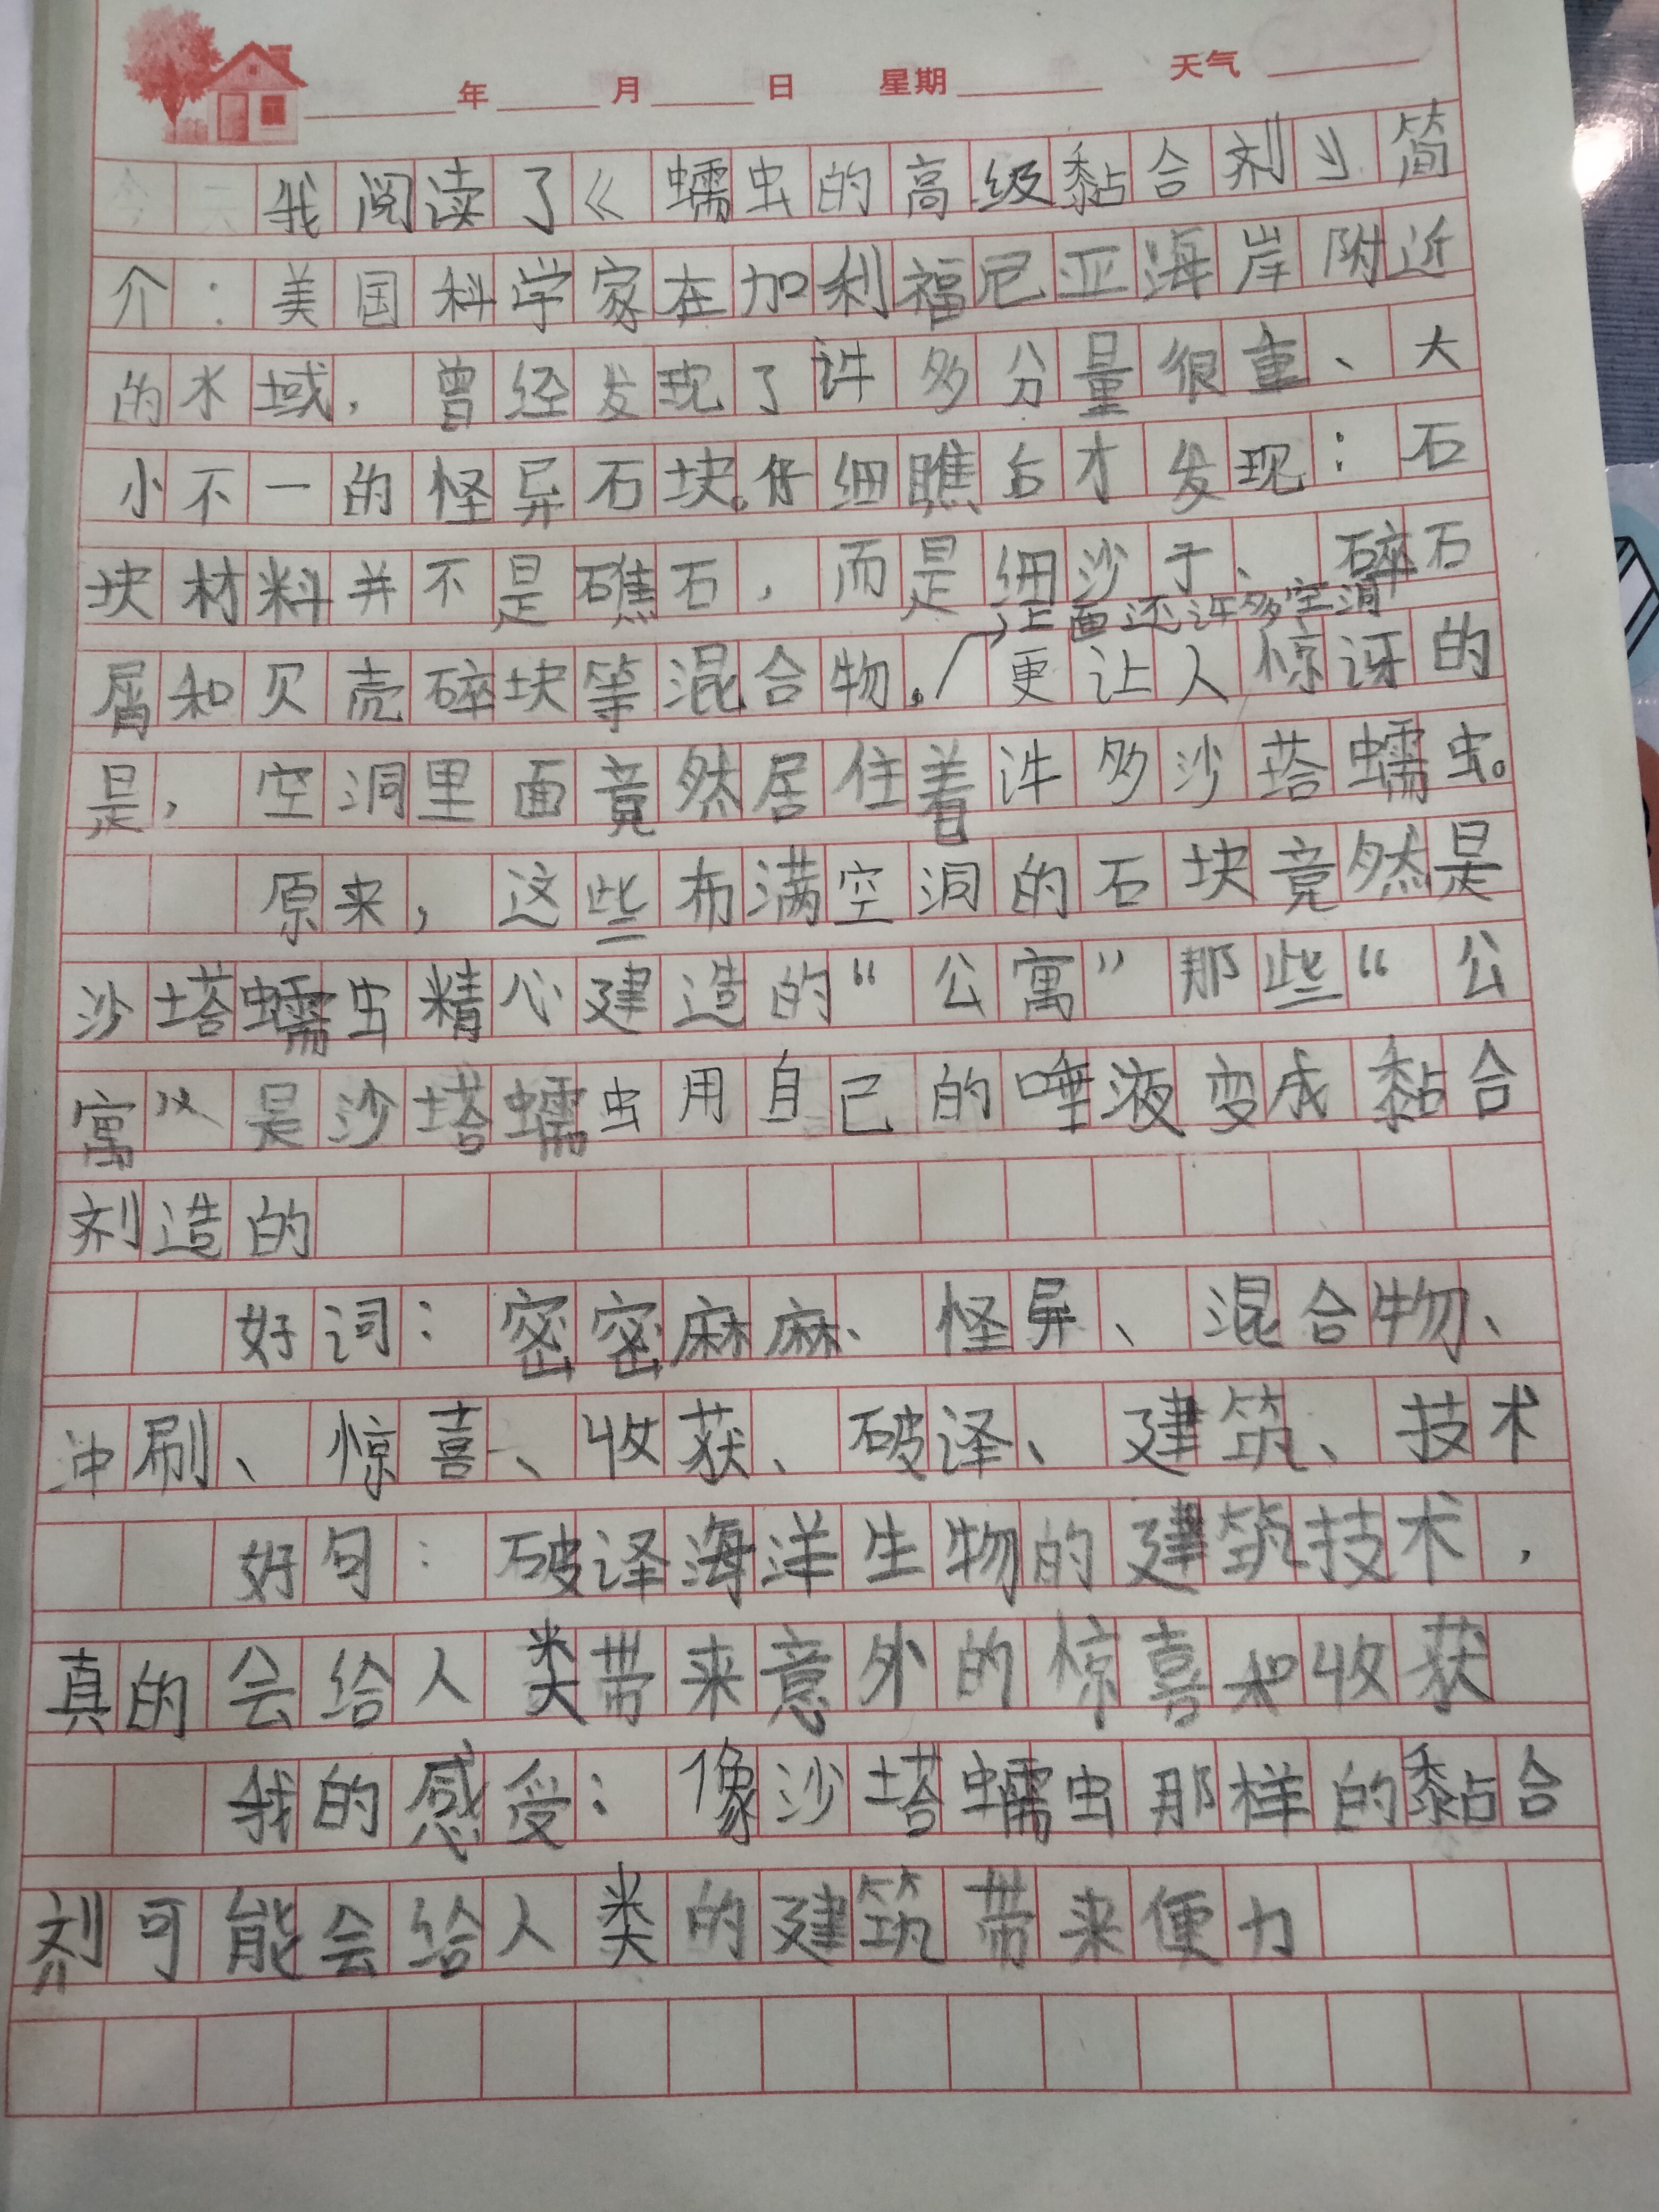 年 月 日 星期 天气
我阅读了《蠕虫的高级黏合剂》简
介：美国科学家在加利福尼亚海岸附近
的水域，曾经发现了许多分量很重、大
小不一的怪异石块。仔细瞧后才发现：石
块材料并不是礁石，而是细沙于、碎石
上面还许多空洞
屑和贝壳碎块等混合物。更让人惊讶的
是，空洞里面竟然居住着许多沙塔蠕虫。
原来，这些布满空洞的石块竟然是
沙塔蠕虫精心建造的“公寓”那些“公
寓”是沙塔蠕虫用自己的唾液变成黏合
剂造的
好词：密密麻麻、怪异、混合物、
冲刷、惊喜、收获、破译、建筑、技术
好句：破译海洋生物的建筑技术，
真的会给人类带来意外的惊喜和收获
我的感受：像沙塔蠕虫那样的黏合
剂可能会给人类的建筑带来便力